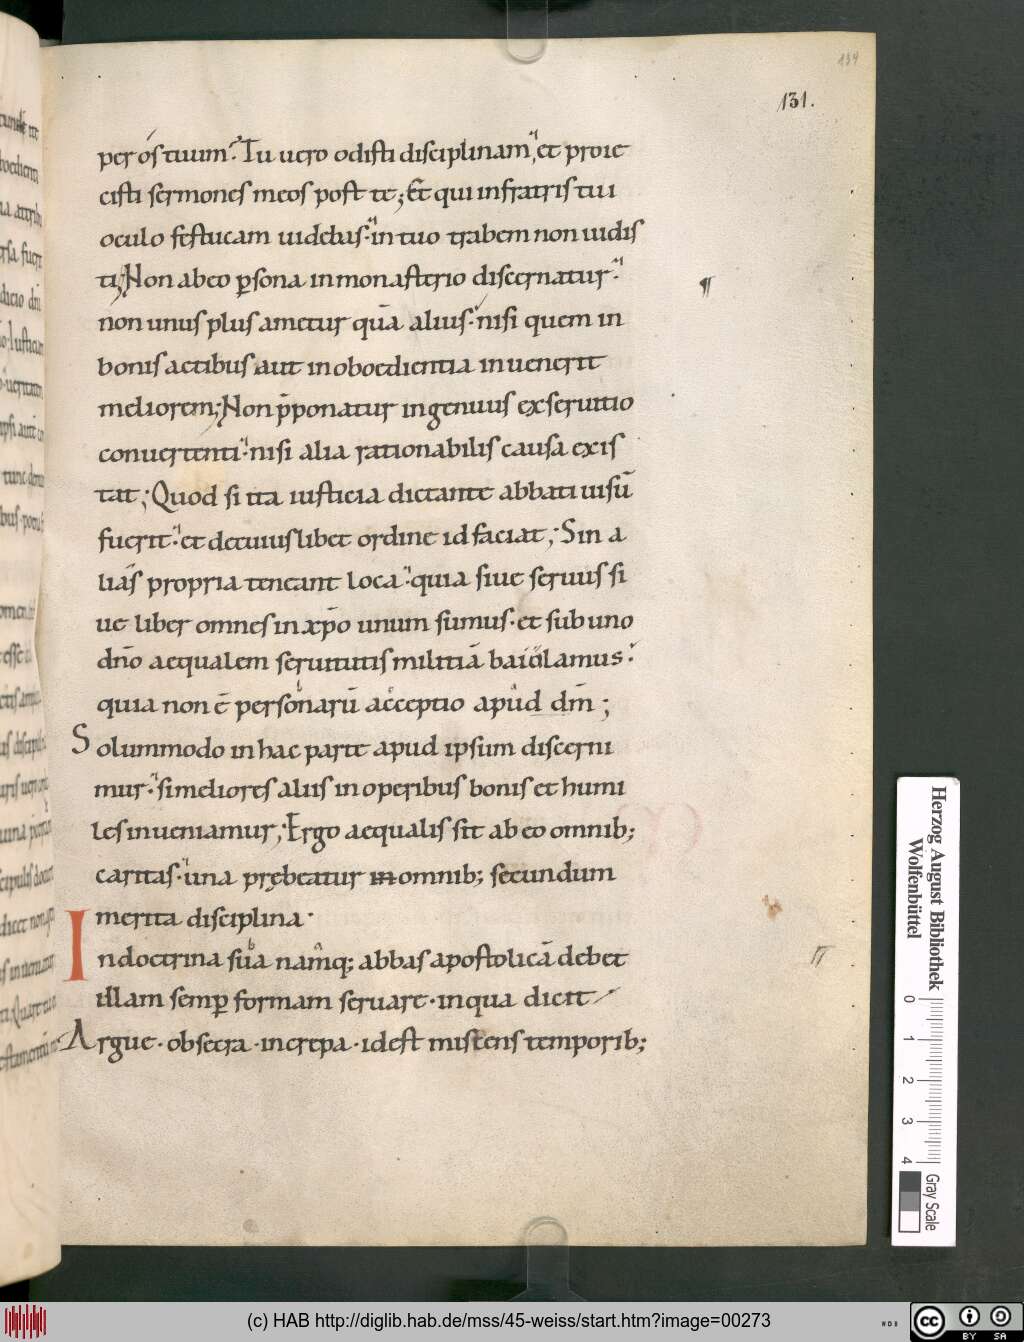 134
131.
per os tuum? Tu uero odisti disciplinam, et proie
cisti sermones meos post te; Et qui in fratris tui
oculo festucam uidebas· in tuo trabem non uidis
ti; Non ab eo ꝑsona in monasterio discernatur·
non unus plus ametur quā alius· nisi quem in
bonis actibus aut in oboedientia inuenerit
meliorem; Non p̄ponatur ingenuus ex seruitio
conuertenti· nisi alia rationabilis causa exis
tat; Quod si ita iusticia dictante abbati uisū
fuerit· et de cuiuslibet ordine id faciat; Sin a
lias propria teneant loca· quia siue seruus si
ue liber omnes in xp̄o unum sumus· et sub uno
dn̄o aequalem seruitutis militiā baiolamus·
quia non ē personarū acceptio apud dm̄;
Solummodo in hac parte apud ipsum discerni
mur· si meliores aliis in operibus bonis et humi
les inueniamur; Ergo aequalis sit ab eo omnib;
caritas· una prębeatur in omnib; secundum
merita disciplina·
In doctrina sua namq; abbas apostolicā debet
illam semꝑ formam seruare· in qua dicit
Argue· obsecra· increpa· id est miscens temporib;
Herzog August Bibliothek
Wolfenbüttel
0 1 2 3 4
Gray Scale
(c) HAB http://diglib.hab.de/mss/45-weiss/start.htm?image=00273
WDB
cc BY SA